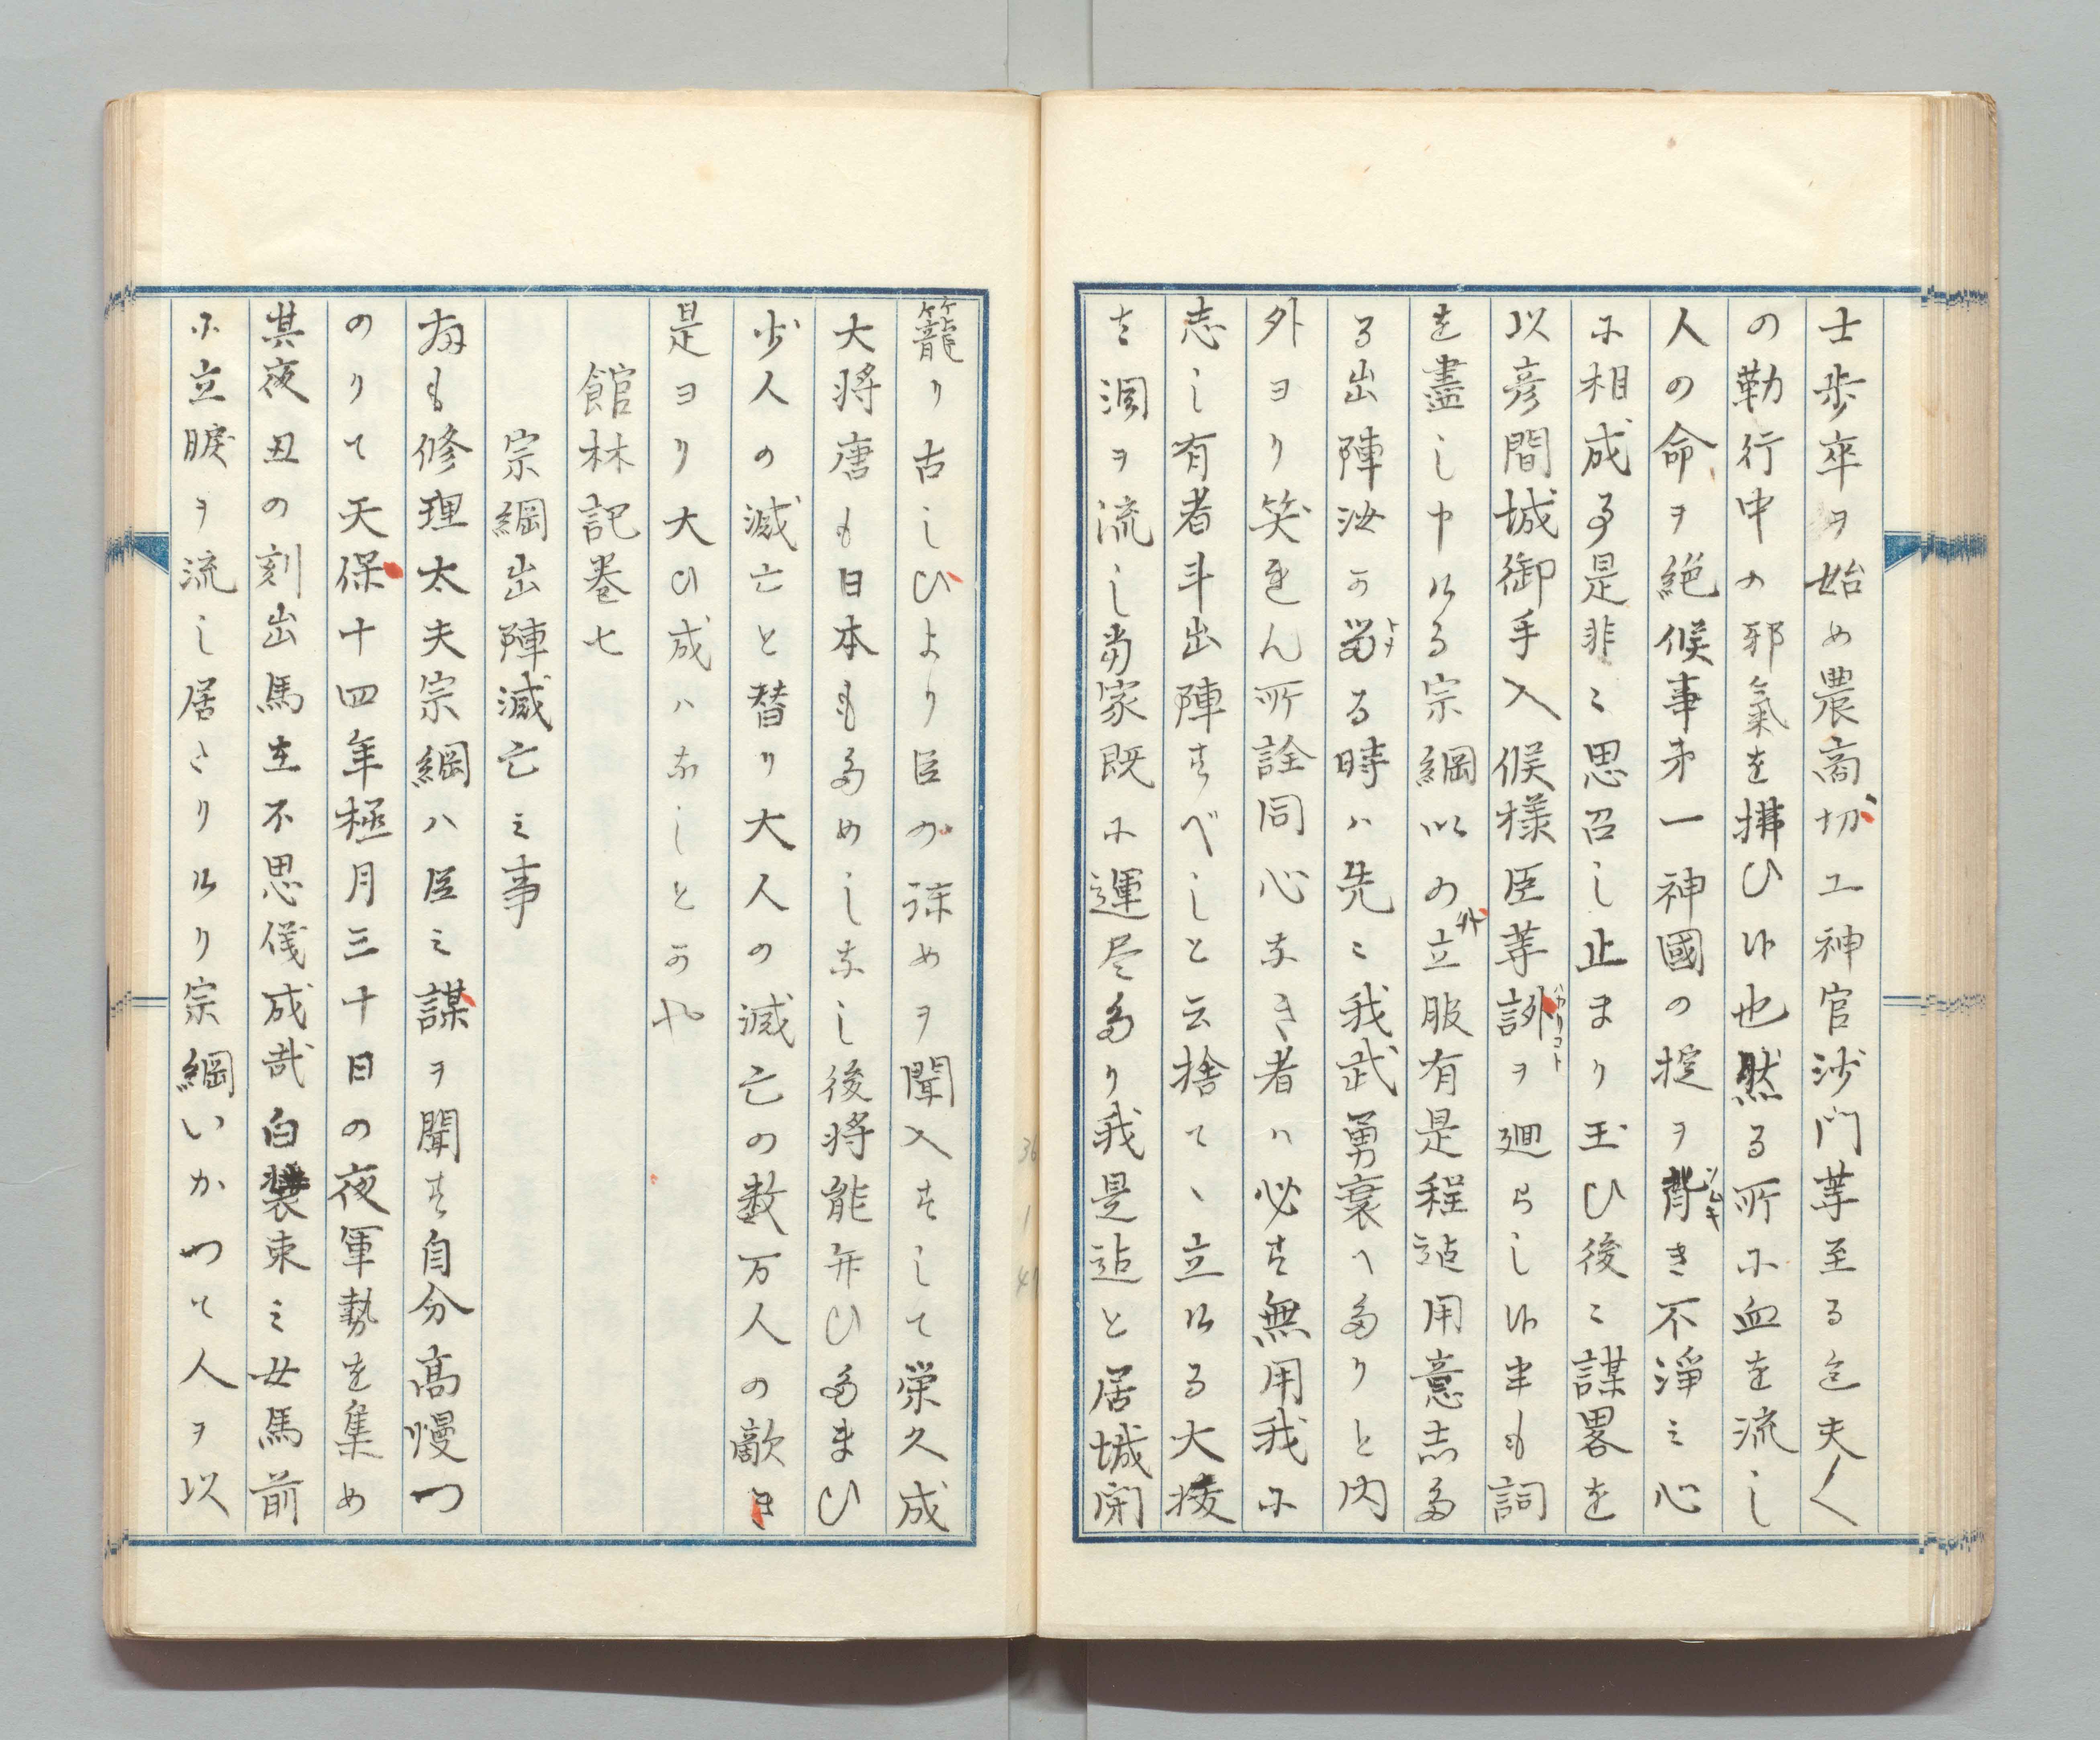 士歩卒ヲ始め農商切工神官沙門等至る迄夫〱
の勤行中の邪氣を拂ひ候也然る所ニ血を流し
人の命ヲ絶候事第一神國の掟ヲ背き不淨之心
ニ相成る是非ミ思召し止まり玉ひ後ミ謀畧を
以彦間城御手入候様臣等計ヲ廻らし候半も詞
を盡し申ける宗綱以の外立服有是程迠用意志た
る出陣汝可留る時ハ先ミ我武勇衰へたりと内
外ヨり笑をん所詮同心なき者ハ必す無用我ニ
志し有者斗出陣すべしと云捨てヽ立ける大掾
す涸ヲ流し當家既ニ運尽たり我是迠と居城閉
籠り古しひより臣の諫めヲ聞入すして栄久成
大将唐も日本もためしなし後将能弁ひたまひ
少人の滅亡と替り大人の滅亡の数万人の敵き
是ヨり大ひ成ハなしと可也
館林記巻七
宗綱出陣滅亡之事
扨も修理太夫宗綱ハ臣之謀ヲ聞す自分高慢つ
のりて天保十四年極月三十日の夜軍勢を集め
其夜丑の刻出馬生不思儀成哉白装束之女馬前
ニ立睙ヲ流し居さりけり宗綱いかつて人ヲ以